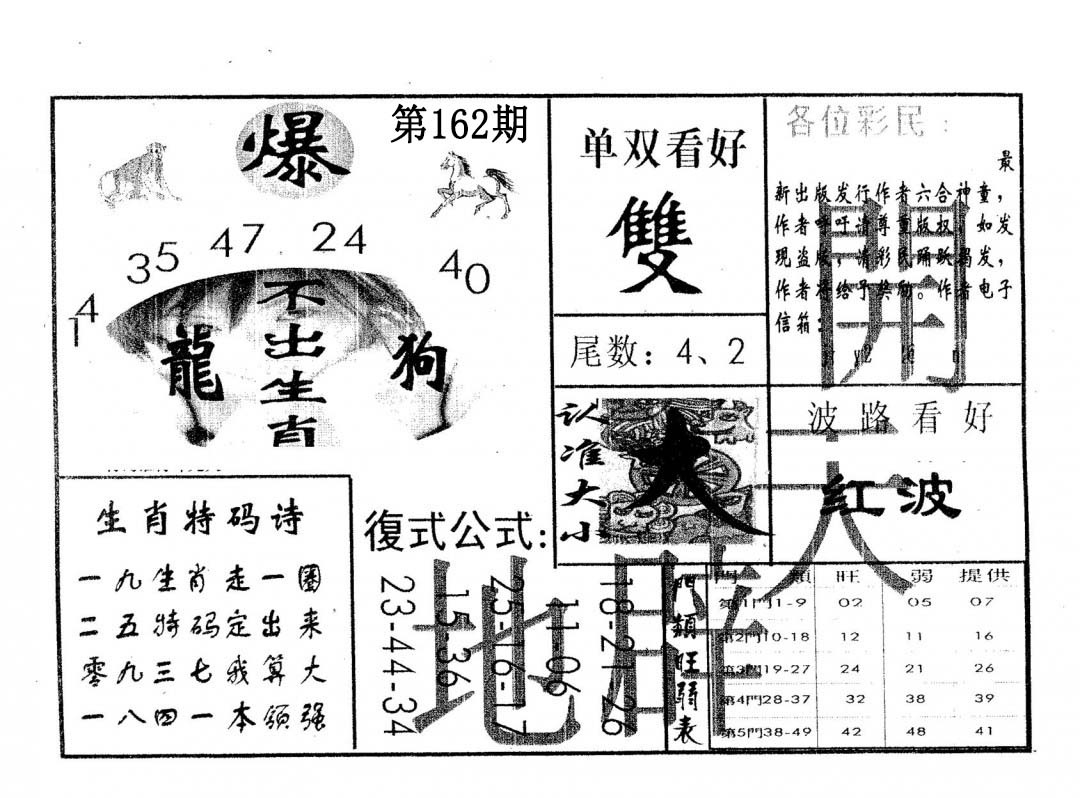 爆
第162期
14 35 47 24 40
龍
不出生肖
狗
单双看好
雙
尾数：4、2
各位彩民：
最
新出版发行作者六合神童，
作者呼吁请尊重版权，如发
现盗版，请彩民踊跃揭发，
作者将给予奖励。作者电子
信箱：
认准大小
大
波路看好
红波
生肖特码诗
一九生肖走一圈
二五特码定出来
零九三七我算大
一八四一本领强
復式公式:
23-44-34
15-36
25-16-17
11-06
18-21-26
開天
地
門類旺弱表
門類 旺 弱 提供
第1門1-9 02 05 07
第2門10-18 12 11 16
第3門19-27 24 21 26
第4門28-37 32 38 39
第5門38-49 42 48 41